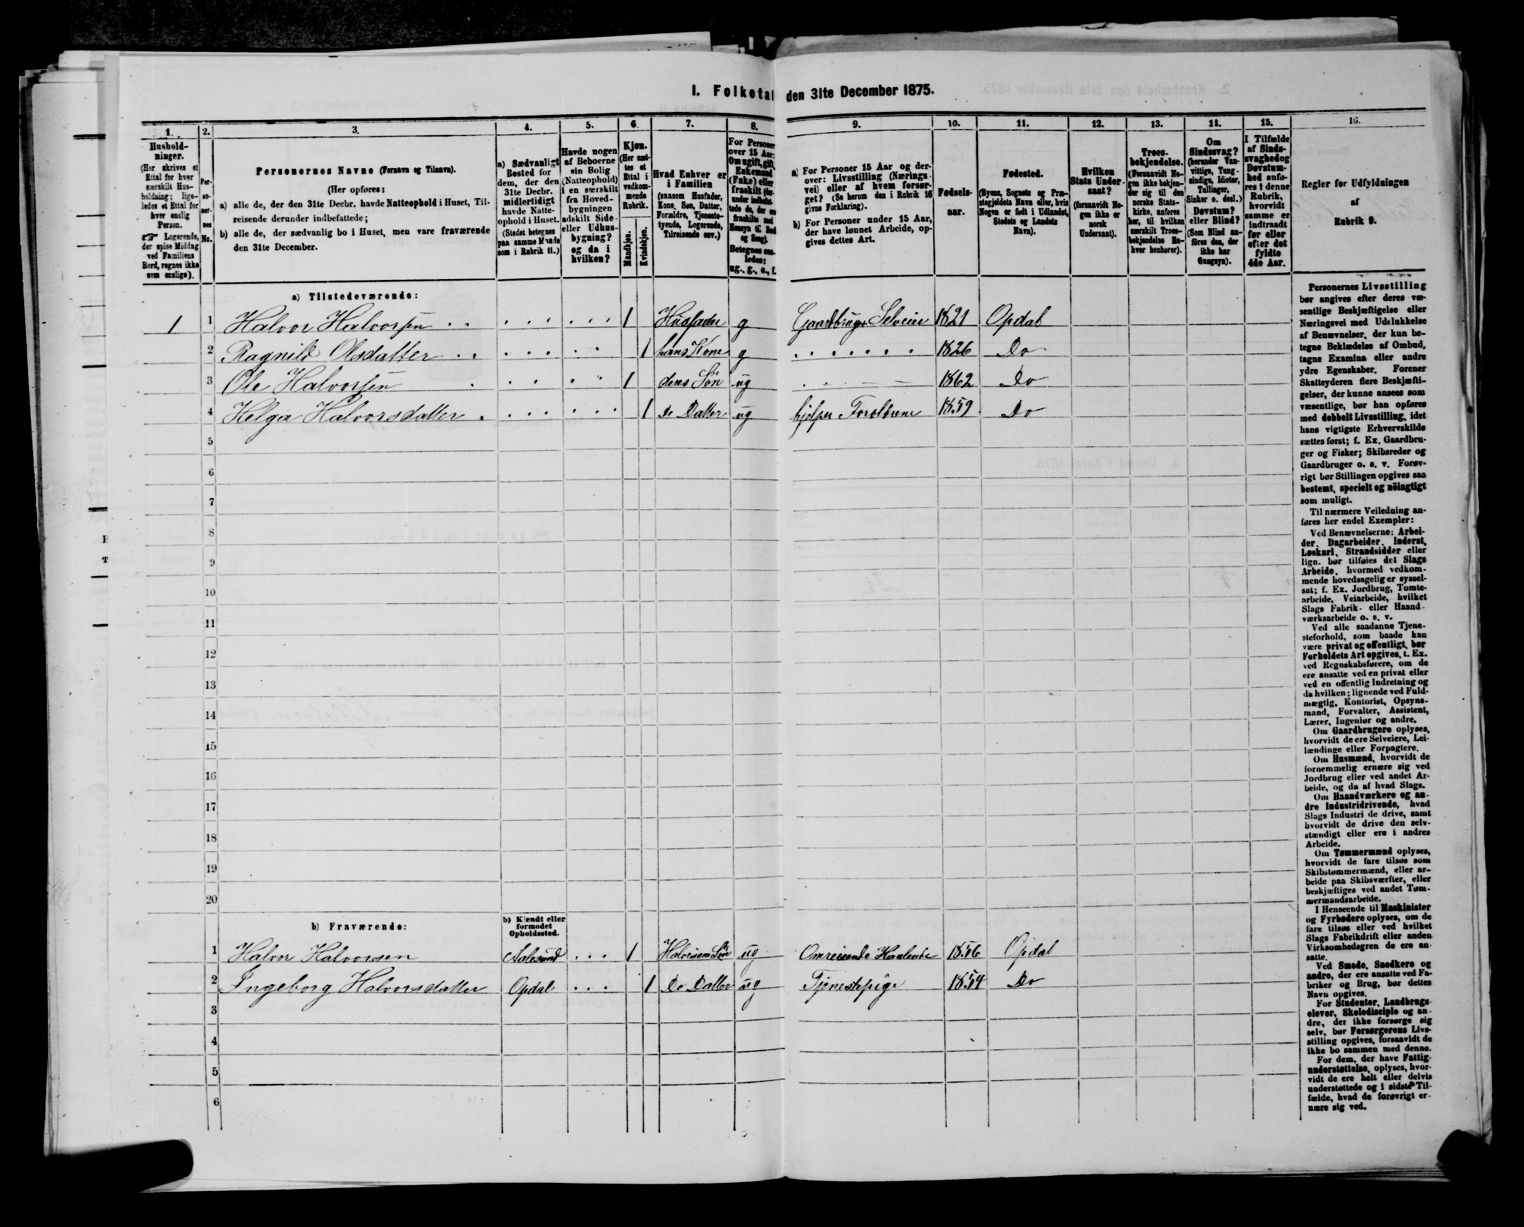 I. Folketal den 31te December 1875.
1.
2.
3.
4.
5.
6.
7.
8.
9.
10.
11.
12.
13.
14.
15.
16.
Hushold-
ninger.
(Her skrives et
Ettal for hver
særskilt Hus-
holdning; lige-
ledes et Ettal for
hver enslig
Person.
☞ Logerende,
der spise Middag
ved Familiens
Bord, regnes ikke
som enslige).
Personernes Navne (Fornavn og Tilnavn).
(Her opføres:
a) alle de, der den 31te Decbr. havde Natteophold i Huset, Til-
reisende derunder indbefattede;
b) alle de, der sædvanlig bo i Huset, men vare fraværende
den 31te December.
a) Sædvanligt
Bosted for
dem, der den
31te Decbr.
midlertidigt
havde Natte-
ophold i Huset.
(Stedet betegnes
paa samme Maade
som i Rubrik 11.)
Havde nogen
af Beboerne
sin Bolig
(Natteophold)
i en særskilt
fra Hoved-
bygningen
adskilt Side-
eller Udhus-
bygning?
og da i
hvilken?
Kjøn.
(Her sæt-
tes et
Ettal i
vedkom-
mende
Rubrik.
Mandkjøn.
Kvindekjøn.
Hvad Enhver er
i Familien
(saasom Husfader,
Kone, Søn, Datter,
Forældre, Tjeneste-
tyende, Logerende,
Tilreisende osv.)
For Personer
over 15 Aar:
Om ugift, gift,
Enkemand
(Enke) eller
fraskilt
Betegnes saa-
ledes:
ug., g., e., f.
a) For Personer 15 Aar og der-
over: Livsstilling (Nærings-
vei) eller af hvem forsør-
get? (Se herom den i Rubrik 16
givne Forklaring).
b) For Personer under 15 Aar,
der have lønnet Arbeide, op-
gives dettes Art.
Fødsels-
aar.
Fødested.
(Byens, Sognets og Præ-
stegjeldets Navn eller, hvis
Nogen er født i Udlandet,
Stedets og Landets
Navn).
Hvilken
Stats Under-
saat?
(forsaavidt No-
gen ikke er
norsk
Undersaat).
Troes-
bekjendelse.
(Forsaavidt No-
gen ikke bekjen-
der sig til den
norske Stats-
kirke, anføres
her, til hvilken
særskilt Troes-
bekjendelse En-
hver henhører).
Om
Sindssvag?
(herunder Van-
vittige, Tung-
sindige, Idioter,
Tullinger,
Sinker o. desl.)
Døvstum?
eller Blind?
(Som Blind an-
føres den, der
ikke har
Gangsyn).
I Tilfælde
af Sinds-
svaghed og
Døvstum-
hed anfø-
res i denne
Rubrik,
hvorvidt
samme er
indtraadt
før eller
efter det
fyldte
4de Aar.
Regler for Udfyldningen
af
Rubrik 9.
a) Tilstedeværende:
1 1 Halvor Halvorsen 1 Husfader g Gaardbruger Selveier 1821 Opdal
2 Ragnild Olsdatter 1 hans Kone g 1826 Do
3 Ole Halvorsen 1 deres Søn ug 1862 Do
4 Helga Halvorsdatter 1 Do Datter ug hjelper Forældrene 1859 Do
5
6
7
8
9
10
11
12
13
14
15
16
17
18
19
20
b) Fraværende:
b) Kjendt eller
formodet
Opholdssted.
1 Halvor Halvorsen Aalesund 1 ug Omreisende Handlende 1856 Opdal
2 Ingeborg Halvorsdatter Opdal 1 Do Datter ug Tjenestepige 1854 Do
3
4
5
6
Personernes Livsstilling
bør angives efter deres væ-
sentlige Beskjæftigelse eller
Næringsvei med Udelukkelse
af Benævnelser, der kun be-
tegne Beklædelse af Ombud,
tagne Examina eller andre
ydre Egenskaber. Forener
Skatteyderen flere Beskjæfti-
gelser, der kunne ansees som
væsentlige, bør han opføres
med dobbelt Livsstilling, idet
hans vigtigste Erhvervskilde
sættes først; f. Ex. Gaardbru-
ger og Fisker; Skibsreder og
Gaardbruger o. s. v. Forøv-
rigt bør Stillingen opgives saa
bestemt, specielt og nøiagtigt
som muligt.
Til nærmere Veiledning an-
føres her endel Exempler:
Ved Benævnelserne: Arbei-
der, Dagarbeider, Inderst,
Løskarl, Strandsidder eller
lign. bør tilføies det Slags
Arbeide, hvormed vedkom-
mende hovedsagelig er syssel-
sat; f. Ex. Jordbrug, Tomte-
arbeide, Veiarbeide, hvilket
Slags Fabrik- eller Haand-
værksarbeide o. s. v.
Ved alle saadanne Tjene-
steforhold, som baade kan
være privat og offentligt, bør
Forholdets Art opgives, t. Ex.
ved Regnskabsførere, om de
ere ansatte ved en privat eller
ved en offentlig Indretning og
da hvilken; lignende ved Fuld-
mægtig, Kontorist, Opsyns-
mand, Forvalter, Assistent,
Lærer, Ingeniør og andre.
Om Gaardbrugere oplyses,
hvorvidt de ere Selveiere, Lei-
lændinge eller Forpagtere.
Om Husmænd, hvorvidt de
fornemmelig ernære sig ved
Jordbrug eller ved andet Ar-
beide, og da af hvad Slags.
Om Haandværkere og an-
dre Industridrivende, hvad
Slags Industri de drive, samt
hvorvidt de drive den selv-
stændigt eller ere i andres
Arbeide.
Om Tømmermænd oplyses,
hvorvidt de fare tilsøs som
Skibstømmermænd, eller ar-
beide paa Skibsværfter, eller
beskjæftiges ved andet Tøm-
mermandsarbeide.
I Henseende til Maskinister
og Fyrbødere oplyses, om de
fare tilsøs eller ved hvilket
Slags Fabrikdrift eller anden
Virksomhedsgren de ere an-
satte.
Ved Smede, Snedkere og
andre, der ere ansatte ved Fa-
briker og Brug, bør dettes
Navn opgives.
For Studenter, Landbrugs-
elever, Skoledisciple og an-
dre, der ikke forsørge sig
selv, bør Forsørgerens Livs-
stilling opgives, forsaavidt de
ikke bo sammen med denne.
For dem, der have Fattig-
understøttelse, oplyses, hvor-
vidt de ere helt eller delvis
understøttede og i sidste Til-
fælde, hvad de forøvrigt er-
nære sig ved.